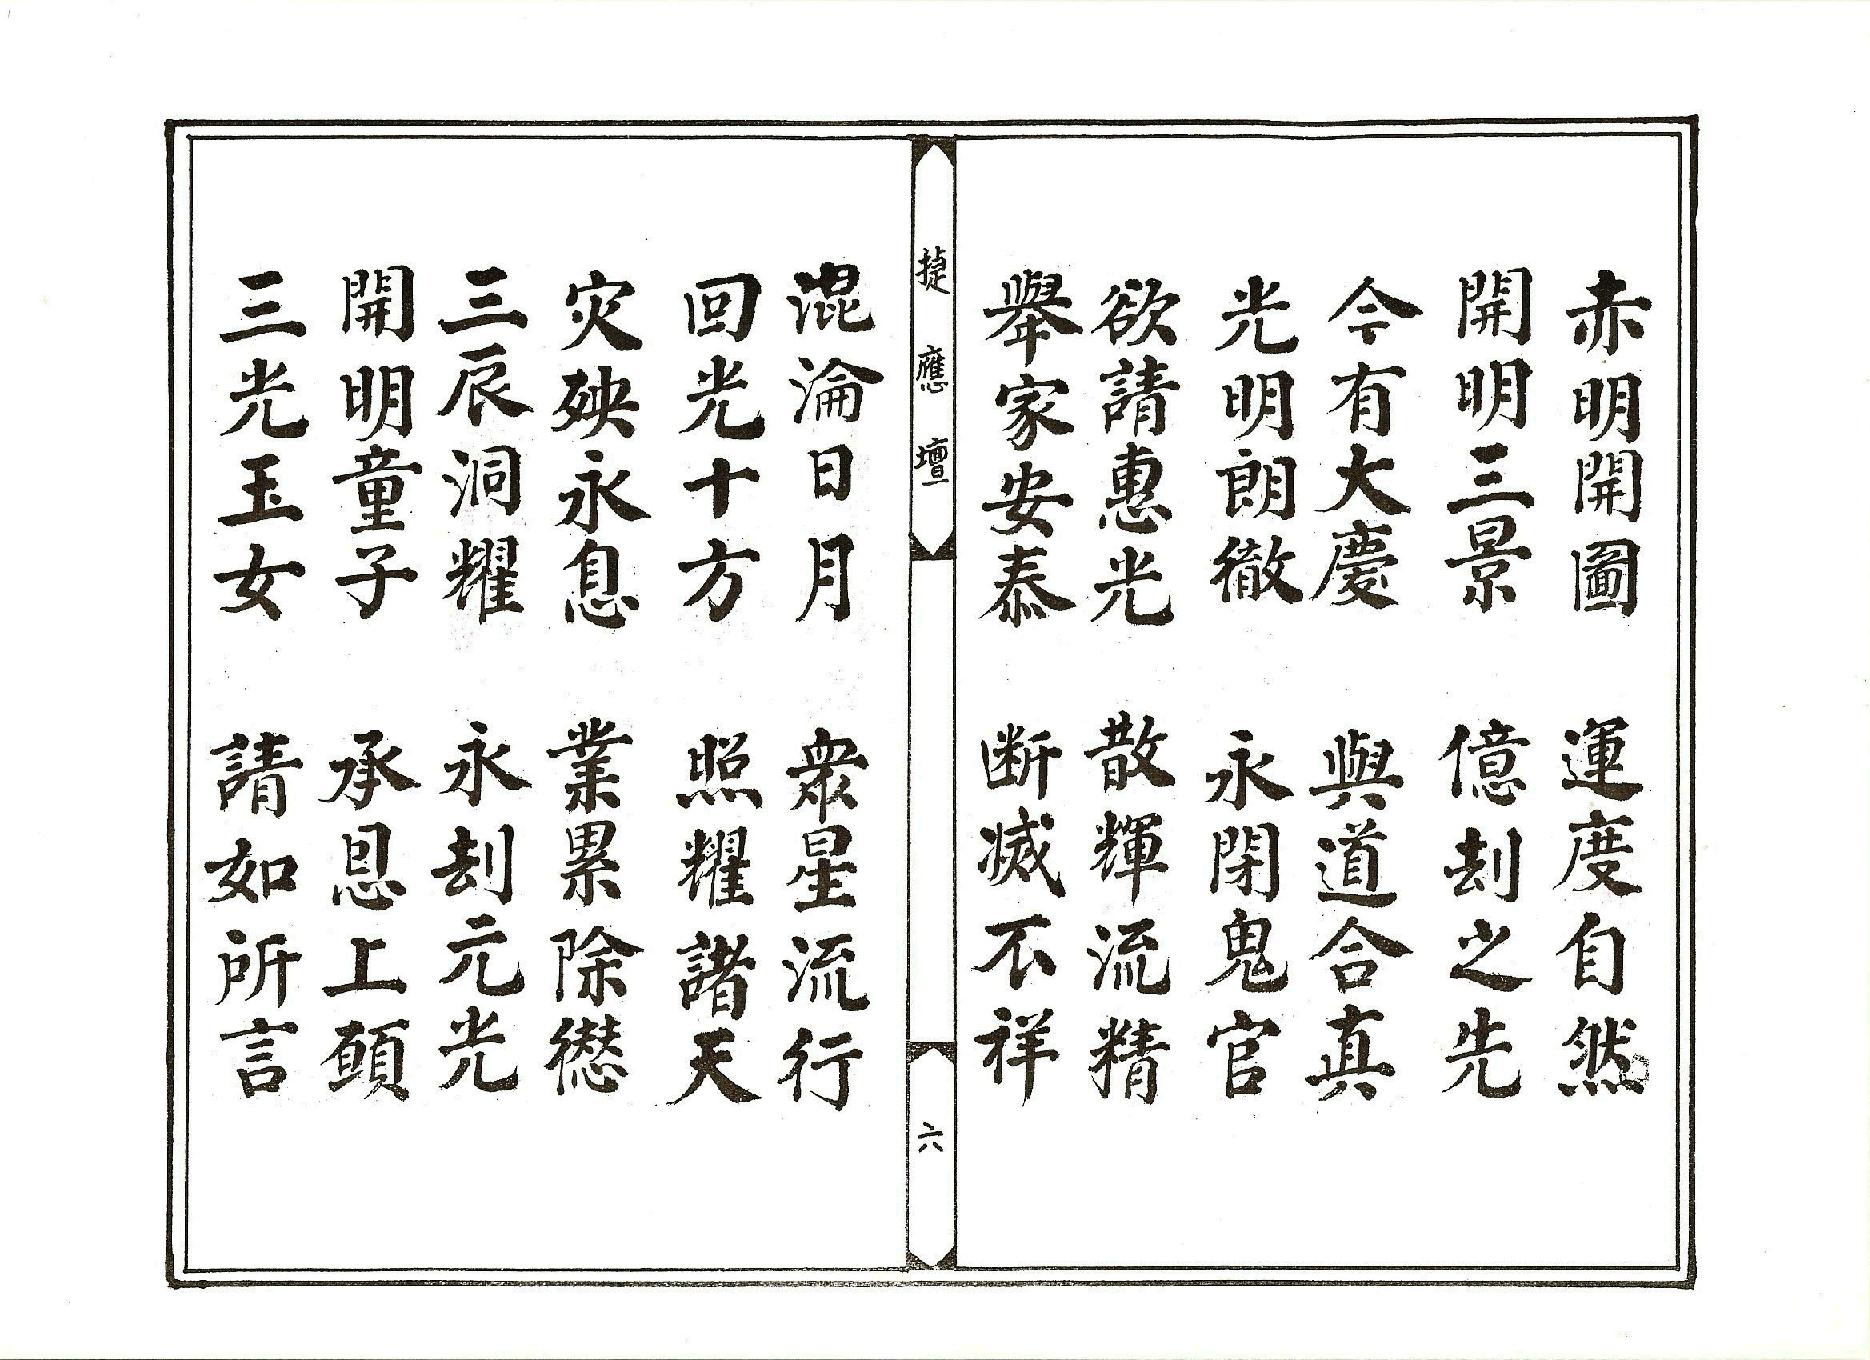 赤明開圖　運度自然
開明三景　億刦之先
今有大慶　與道合真
光明朗徹　永閉鬼官
欲請惠光　散輝流精
舉家安泰　断滅不祥
捷應壇
六
混淪日月　衆星流行
回光十方　照耀諸天
灾殃永息　業累除愆
三辰洞耀　永刦元光
開明童子　承恩上願
三光玉女　請如所言